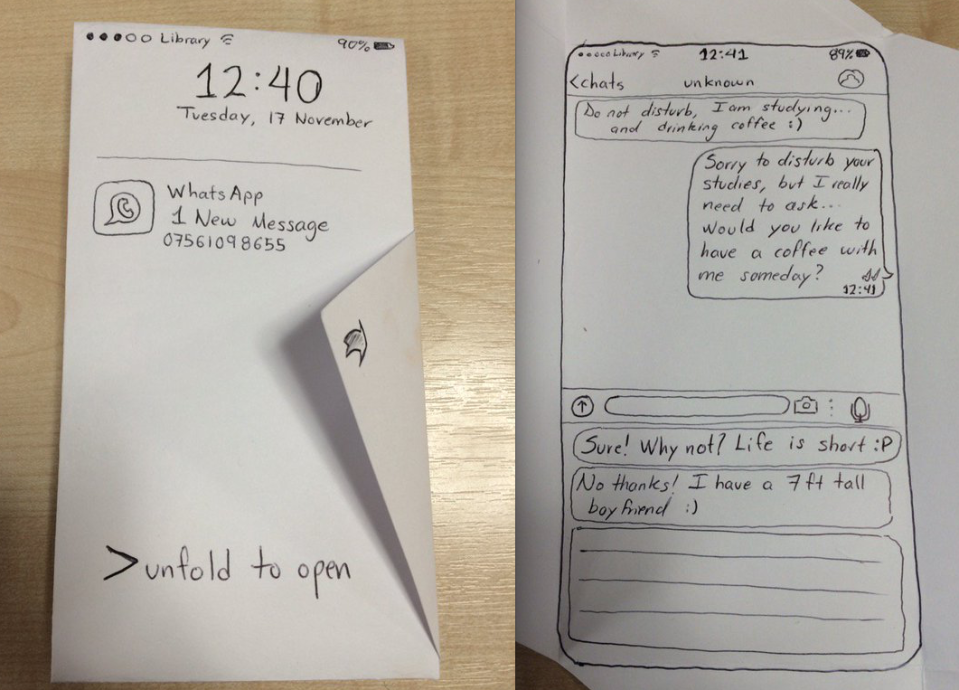 Library
90%
12:40
Tuesday, 17 November
WhatsApp
1 New Message
07561098655
>unfold to open
Library
12:41
89%
<chats
unknown
Do not disturb, I am studying...
and drinking coffee :)
Sorry to disturb your
studies, but I really
need to ask...
Would you like to
have a coffee with
me someday?
12:41
Sure! Why not? Life is short :P
No thanks! I have a 7ft tall
boyfriend :)